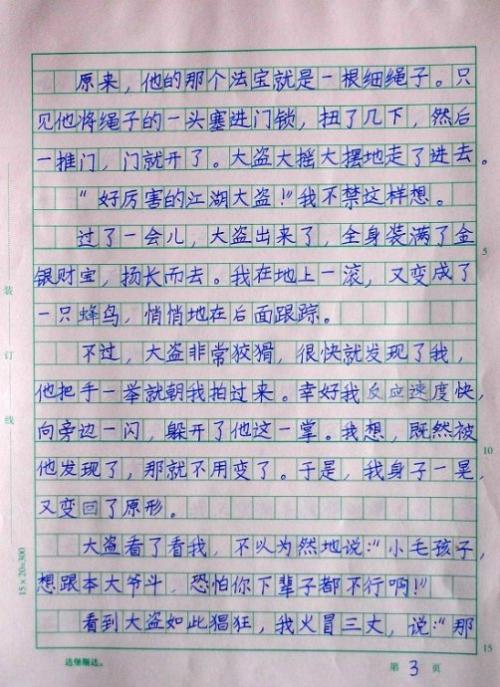 原来，他的那个法宝就是一根细绳子。只
见他将绳子的一头塞进门锁，扭了几下，然后
一推门，门就开了。大盗大摇大摆地走了进去。
“好厉害的江湖大盗！”我不禁这样想。
过了一会儿，大盗出来了，全身装满了金
银财宝，扬长而去。我在地上一滚，又变成了
一只蜂鸟，悄悄地在后面跟踪。
不过，大盗非常狡猾，很快就发现了我，
他把手一举就朝我拍过来。幸好我反应速度快，
向旁边一闪，躲开了他这一掌。我想，既然被
他发现了，那就不用变了。于是，我身子一晃，
又变回了原形。
大盗看了看我，不以为然地说：“小毛孩子，
想跟本大爷斗，恐怕你下辈子都不行啊！”
看到大盗如此猖狂，我火冒三丈，说：“那
装
订
线
5
10
15
15×20=300
达堡顺达。
第 3 页